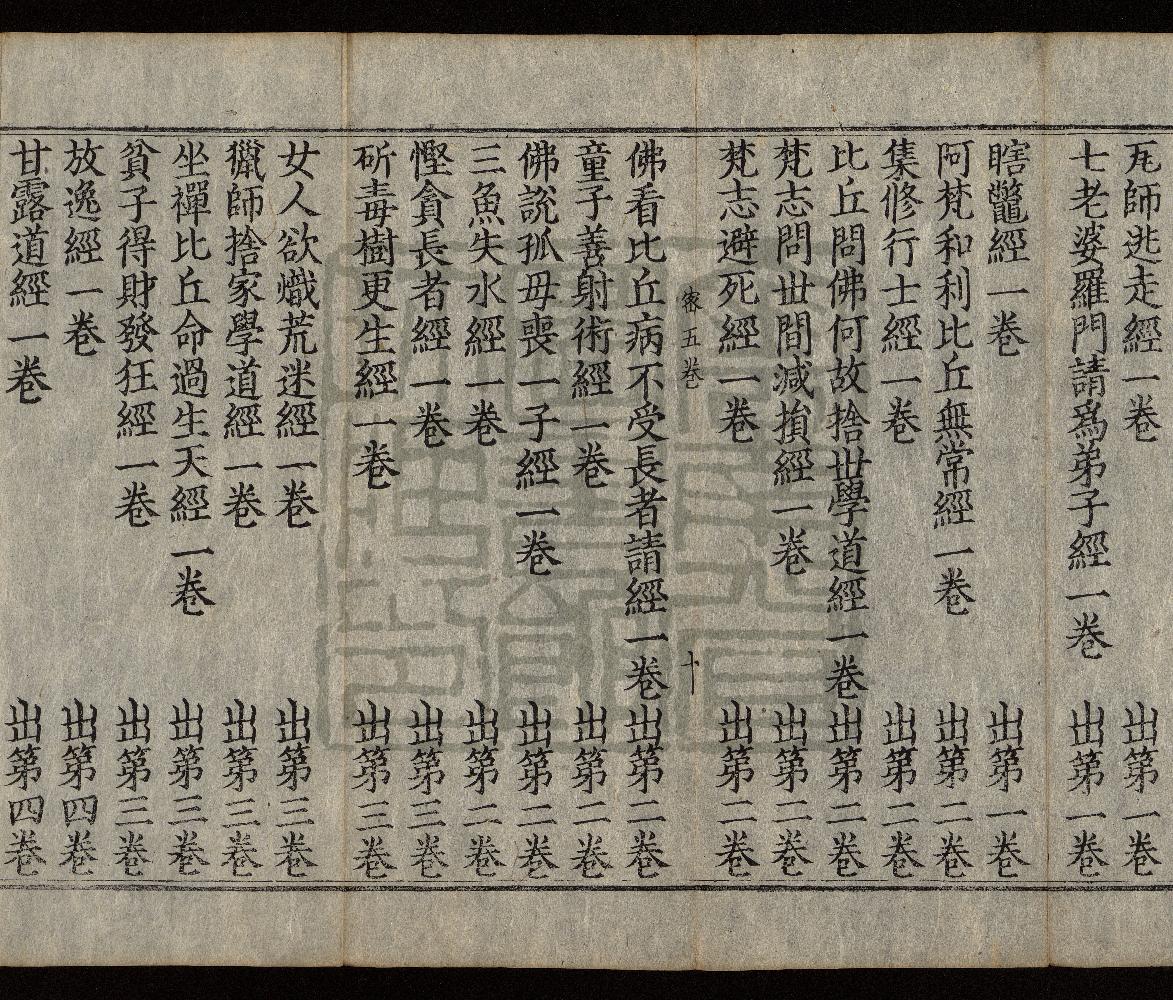 瓦師逃走經一卷 出第一卷
七老婆羅門請爲弟子經一卷 出第一卷
瞎鼈經一卷 出第一卷
阿梵和利比丘無常經一卷 出第二卷
集修行士經一卷 出第二卷
比丘問佛何故捨世學道經一卷 出第二卷
梵志問世間減損經一卷 出第二卷
梵志避死經一卷 出第二卷
五卷 十
佛看比丘病不受長者請經一卷 出第二卷
童子善射術經一卷 出第二卷
佛說孤母喪一子經一卷 出第二卷
三魚失水經一卷 出第二卷
慳貪長者經一卷 出第三卷
斫毒樹更生經一卷 出第三卷
女人欲熾荒迷經一卷 出第三卷
獵師捨家學道經一卷 出第三卷
坐禪比丘命過生天經一卷 出第三卷
貧子得財發狂經一卷 出第三卷
放逸經一卷 出第四卷
甘露道經一卷 出第四卷